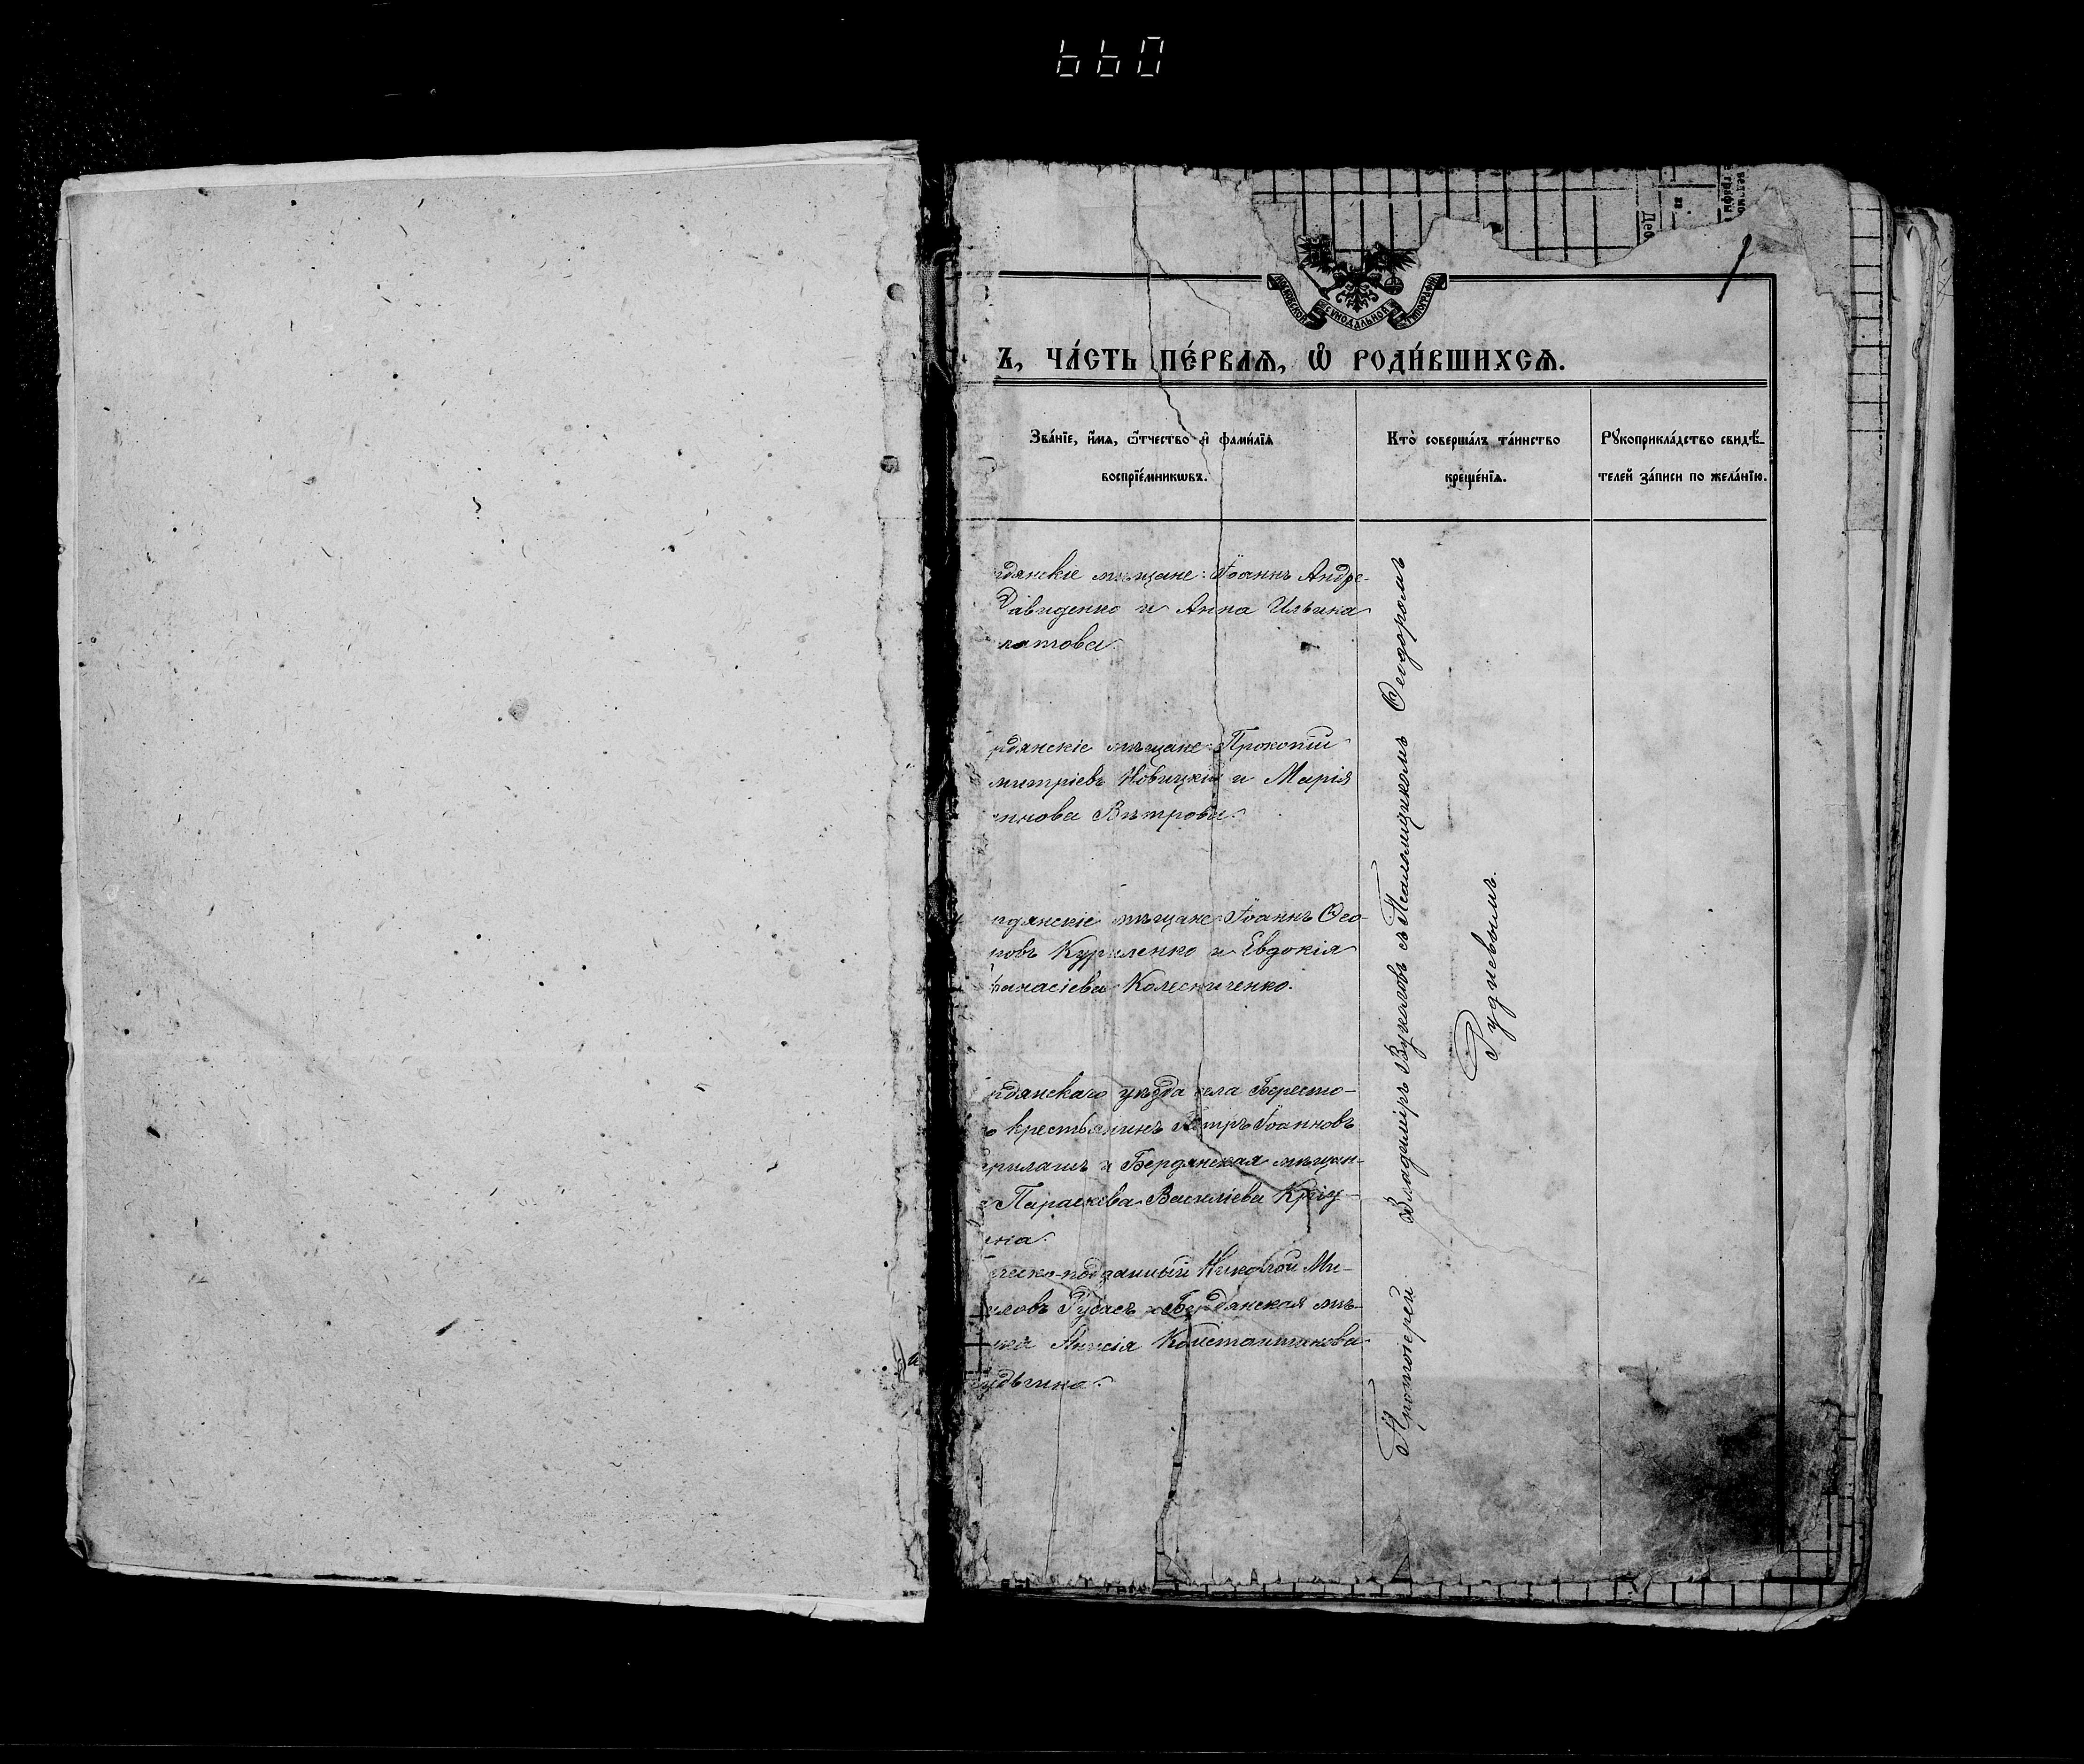 660
Деб
МОСКОВСКОЙ СѴНОДАЛЬНОЙ ТИПОГРАФІИ
1
Ъ, ЧА́СТЬ ПЕ́РВАѦ, Ѡ РОДИ́ВШИХСѦ.
Зва́нїе, и́мѧ, ѻ҆́тчество и҆ фами́лїѧ
воспрїе́мникѡвъ.
Кто̀ соверша́лъ та́инство
креще́нїѧ.
Рꙋкоприкла́дство свидѣ́-
телей за́писи по жела́нїю.
рдянскіе мѣщане: Іоаннъ Андре-
Давиденко и Анна Ильина
матова.
рдянскіе мѣщане: Прокопій
митріевъ Новицкій и Марія
ннова Вѣтрова.
рдянскіе мѣщане: Іоаннъ Ѳео-
повъ Куриленко и Евдокія
фанасіева Колесниченко.
рдянскаго уѣзда села Бересто-
о крестьянинъ Петръ Іоанновъ
и Бердянская мѣщан-
Параскева Василіева Кріу-
на.
ческо-подданный Николай Ми-
иловъ и Бердянская мѣ-
нка Анисія Константинова
Протоіерей Владиміръ съ Псаломщикомъ Ѳеодоромъ
Рудневымъ.